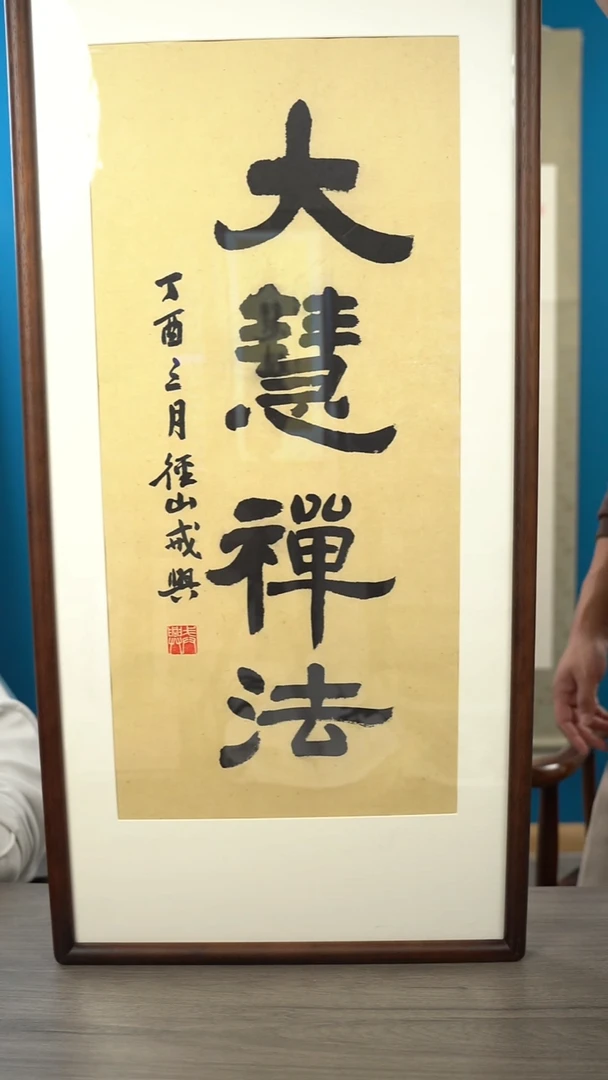 大慧禪法
丁酉三月徑山戒興